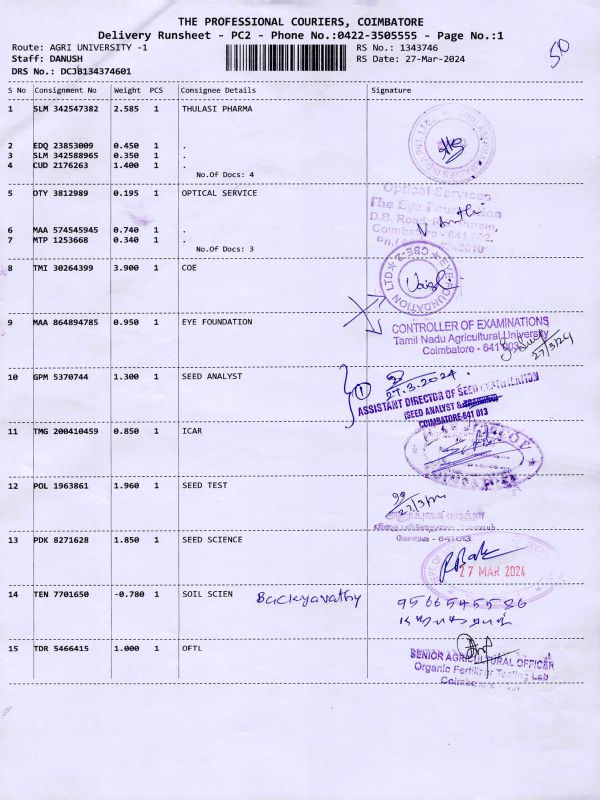 THE PROFESSIONAL COURIERS, COIMBATORE
Delivery Runsheet - PC2 - Phone No.:0422-3505555 - Page No.:1
50
Route: AGRI UNIVERSITY -1
RS No.: 1343746
Staff: DANUSH
RS Date: 27-Mar-2024
DRS No.: DCJB134374601
S No Consignment No Weight PCS Consignee Details Signature
1 SLM 342547382 2.585 1 THULASI PHARMA
2 EDQ 23853009 0.450 1 .
3 SLM 342588965 0.350 1 .
4 CUD 2176263 1.400 1 .
No.Of Docs: 4
5 OTY 3812989 0.195 1 OPTICAL SERVICE
Optical Services
The Eye Foundation
D.B. Road,
6 MAA 574545945 0.740 1 .
Coimbatore - 641 002.
7 MTP 1253668 0.340 1 .
No.Of Docs: 3
8 TMI 30264399 3.900 1 COE
EYE FOUNDATION LTD ★ CBE-2 ★
9 MAA 864894785 0.950 1 EYE FOUNDATION
CONTROLLER OF EXAMINATIONS
Tamil Nadu Agricultural University
Coimbatore - 641 003.
27/3/24
10 GPM 5370744 1.300 1 SEED ANALYST
1
27.3.2024
ASSISTANT DIRECTOR OF SEED CERTIFICATION
(SEED ANALYST & TRAINING)
COIMBATORE-641 013
11 TMG 200410459 0.850 1 ICAR
12 POL 1963861 1.960 1 SEED TEST
13 PDK 8271628 1.850 1 SEED SCIENCE
27 MAR 2024
14 TEN 7701650 -0.780 1 SOIL SCIEN Backyavathy
9566545586
15 TDR 5466415 1.000 1 OFTL
SENIOR AGRICULTURAL OFFICER
Organic Fertilizer Testing Lab
Coimbatore